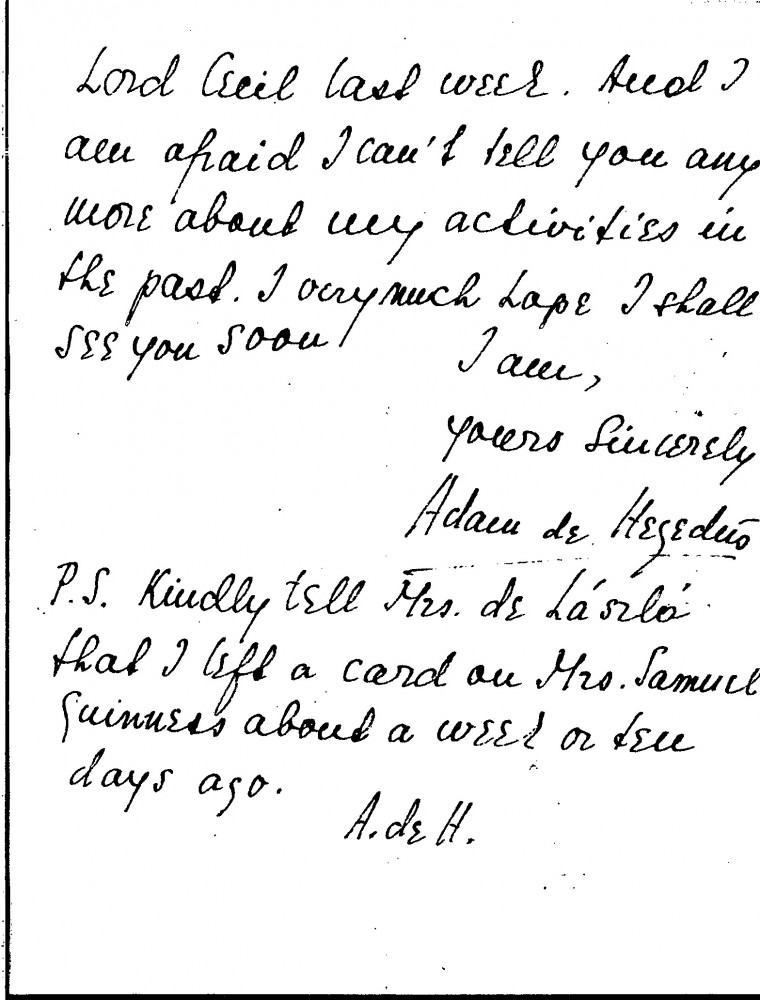 Lord Cecil last week. And I
am afraid I can't tell you any
more about my activities in
the past. I very much hope I shall
see you soon
I am,
yours sincerely
Adam de Hegedüs
P.S. Kindly tell Mrs. de László
that I left a card on Mrs. Samuel
Guinness about a week or ten
days ago.
A. de H.